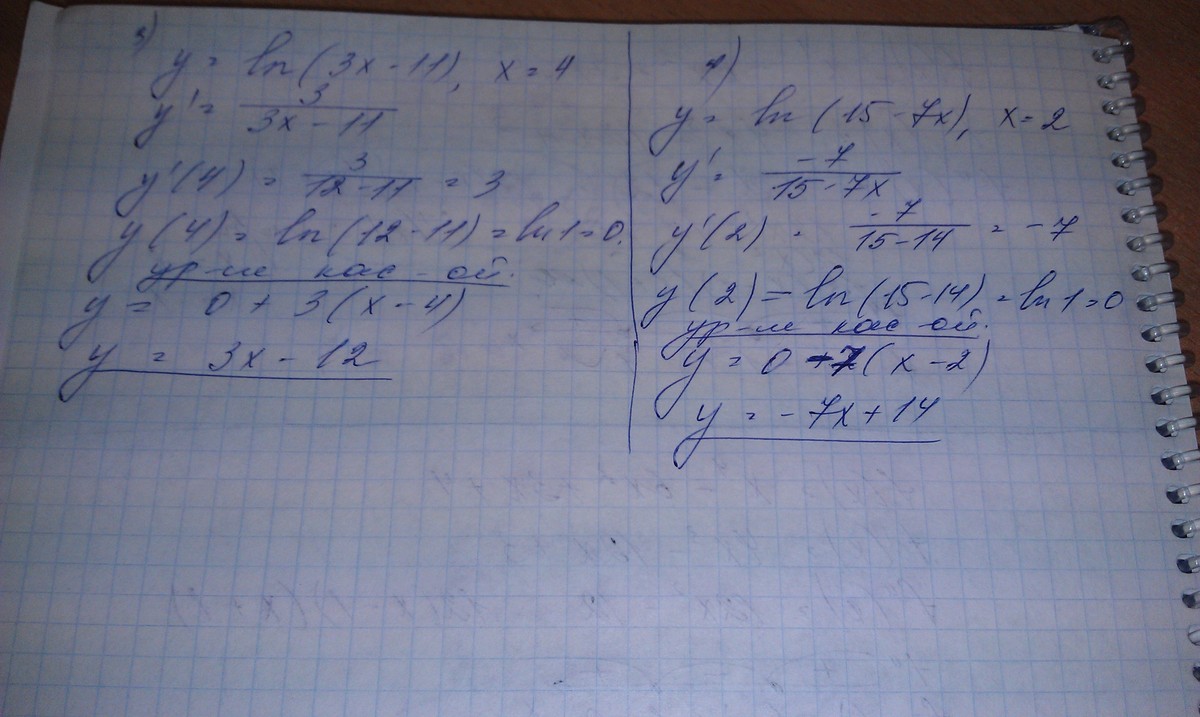 3)
y = ln(3x-11), x=4
y' = 3/(3x-11)
y'(4) = 3/(12-11) = 3
y(4) = ln(12-11) = ln1=0.
ур-ие кас-ой.
y = 0 + 3(x-4)
y = 3x - 12
4)
y = ln(15-7x), x=2
y' = -7/(15-7x)
y'(2) = -7/(15-14) = -7
y(2) = ln(15-14) = ln1=0
ур-ие кас-ой.
y = 0 -7(x-2)
y = -7x+14